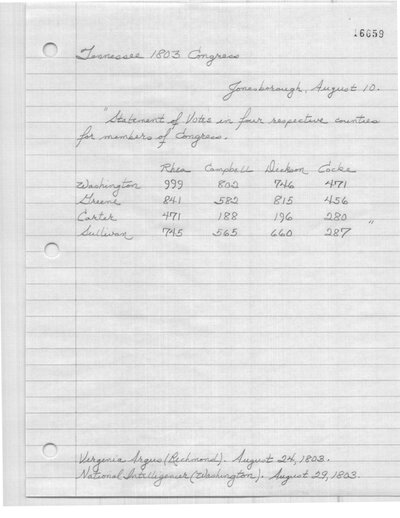 16659
Tennessee 1803 Congress
Jonesborough, August 10.
"Statement of Votes in four respective counties
for members of Congress.
Rhea Campbell Dickson Cocke
Washington 999 802 746 471
Greene 841 582 815 456
Carter 471 188 196 280 "
Sullivan 745 565 660 287
Virginia Argus (Richmond). August 24, 1803.
National Intelligencer (Washington). August 29, 1803.